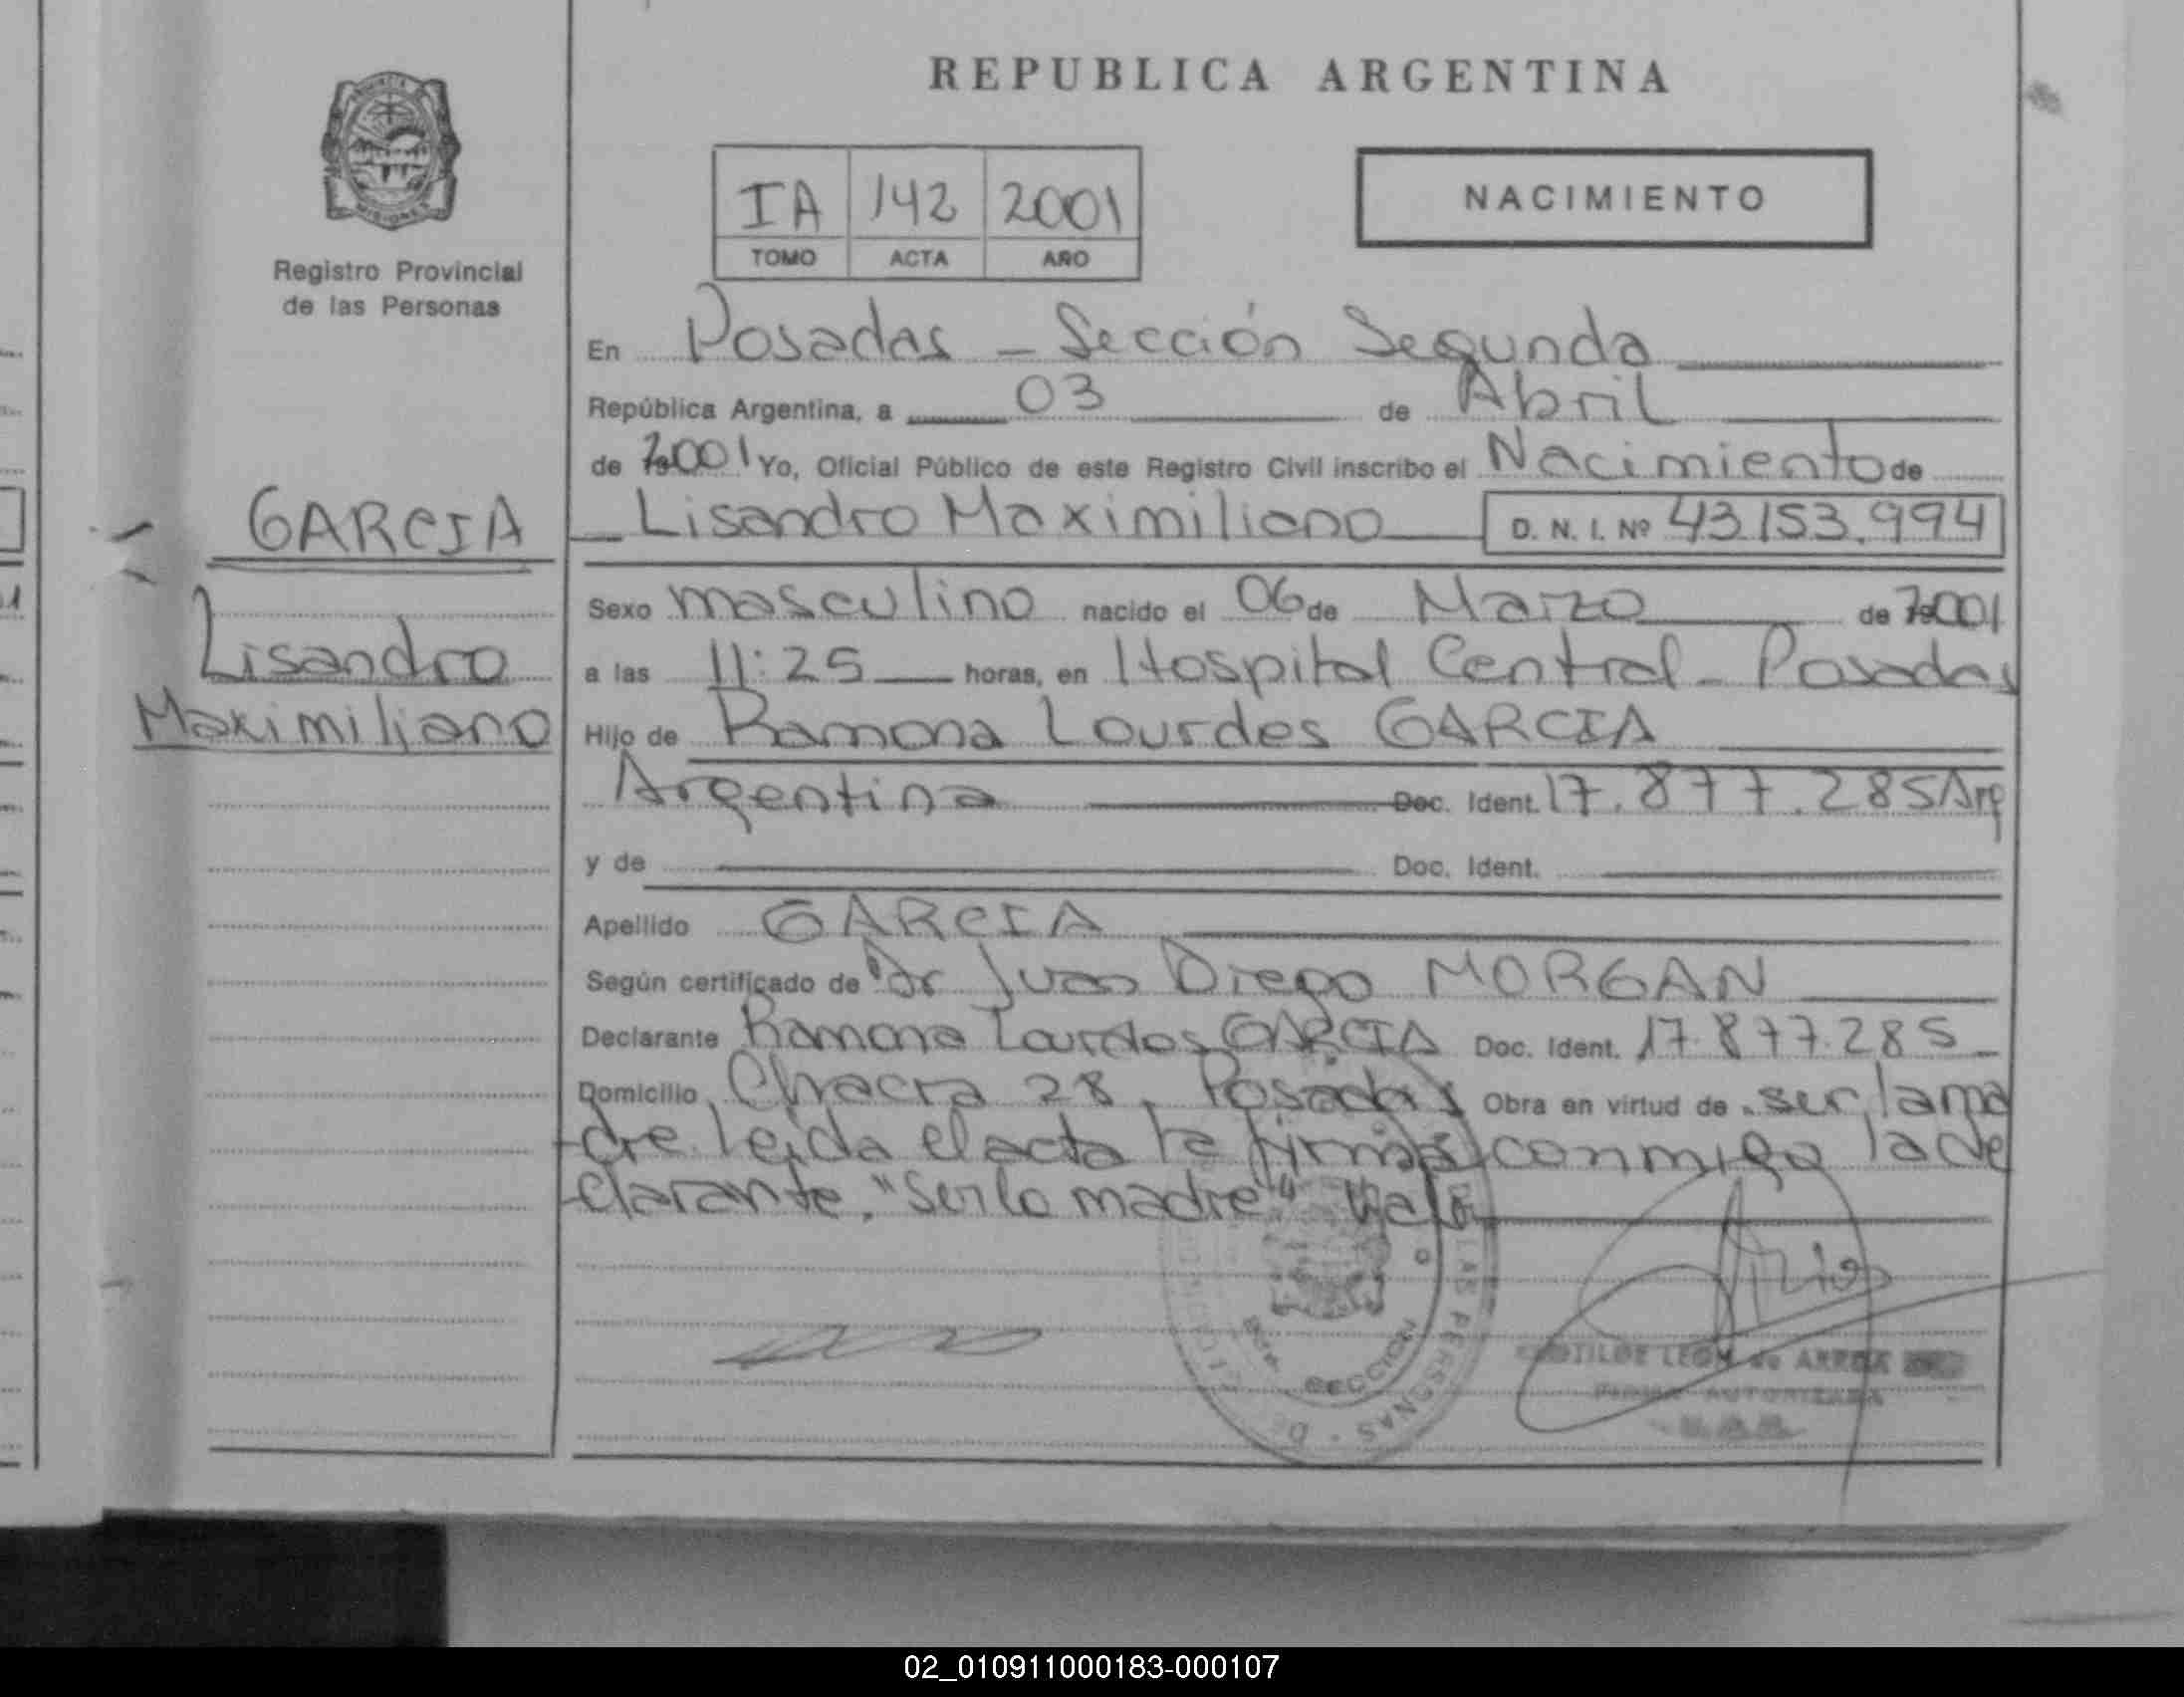 REPUBLICA ARGENTINA
PROVINCIA
MISIONES
Registro Provincial
de las Personas
IA 142 2001
TOMO ACTA AÑO
NACIMIENTO
En Posadas - Sección Segunda
República Argentina, a 03 de Abril
de 2001 Yo, Oficial Público de este Registro Civil inscribo el Nacimiento de
GARCIA
Lisandro
Maximiliano
Lisandro Maximiliano D. N. I. Nº 43.153.994
Sexo masculino nacido el 06 de Marzo de 2001
a las 11:25 horas, en Hospital Central - Posadas
Hijo de Ramona Lourdes GARCIA
Argentina Doc. Ident. 17.877.285 Arg
y de Doc. Ident.
Apellido GARCIA
Según certificado de Dr Juan Diego MORGAN
Declarante Ramona Lourdes GARCIA Doc. Ident. 17.877.285
Domicilio Chacra 28, Posadas Obra en virtud de ser la ma
dre Leida el acta la firma conmigo la de
clarante. "Ser la madre" Vale
LAS PERSONAS
SECCION
LEON de
FIRMA AUTORIZADA
02_010911000183-000107